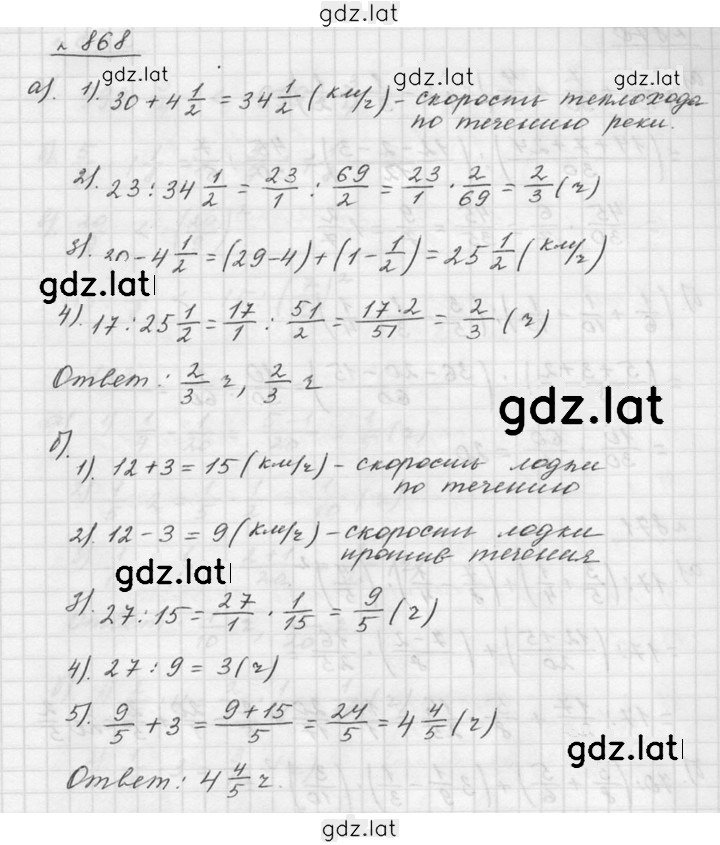 gdz.lat
№ 868
gdz.lat gdz.lat
а). 1). 30 + 4 1/2 = 34 1/2 (км/ч) - скорость теплохода
по течению реки.
2). 23 : 34 1/2 = 23/1 : 69/2 = 23/1 · 2/69 = 2/3 (ч)
3). 30 - 4 1/2 = (29-4) + (1 - 1/2) = 25 1/2 (км/ч)
gdz.lat
4). 17 : 25 1/2 = 17/1 : 51/2 = 17·2/51 = 2/3 (ч)
Ответ: 2/3 ч, 2/3 ч
gdz.lat
б).
1). 12 + 3 = 15 (км/ч) - скорость лодки
по течению
2). 12 - 3 = 9 (км/ч) - скорость лодки
против течения
gdz.lat
3). 27 : 15 = 27/1 · 1/15 = 9/5 (ч)
4). 27 : 9 = 3 (ч)
5). 9/5 + 3 = 9+15/5 = 24/5 = 4 4/5 (ч)
gdz.lat
Ответ: 4 4/5 ч.
gdz.lat